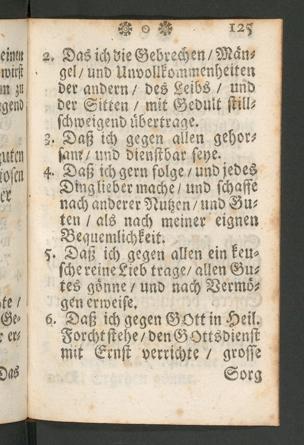 125
2. Das ich die Gebrechen / Män-
gel / und Unvollkommenheiten
der andern / des Leibs / und
der Sitten / mit Gedult still-
schweigend übertrage.
3. Daß ich gegen allen gehor-
sam / und dienstbar seye.
4. Daß ich gern folge / und jedes
Ding lieber mache / und schaffe
nach anderer Nutzen / und Gu-
ten / als nach meiner eignen
Bequemlichkeit.
5. Daß ich gegen allen ein keu-
sche reine Lieb trage / allen Gu-
tes gönne / und nach Vermö-
gen erweise.
6. Daß ich gegen GOtt in Heil.
Forcht stehe / den GOttsdienst
mit Ernst verrichte / grosse
Sorg